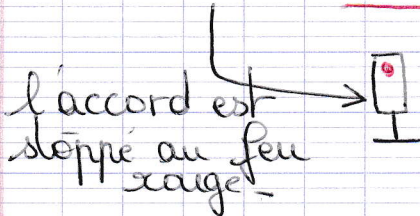 l'accord est
stoppé au feu
rouge